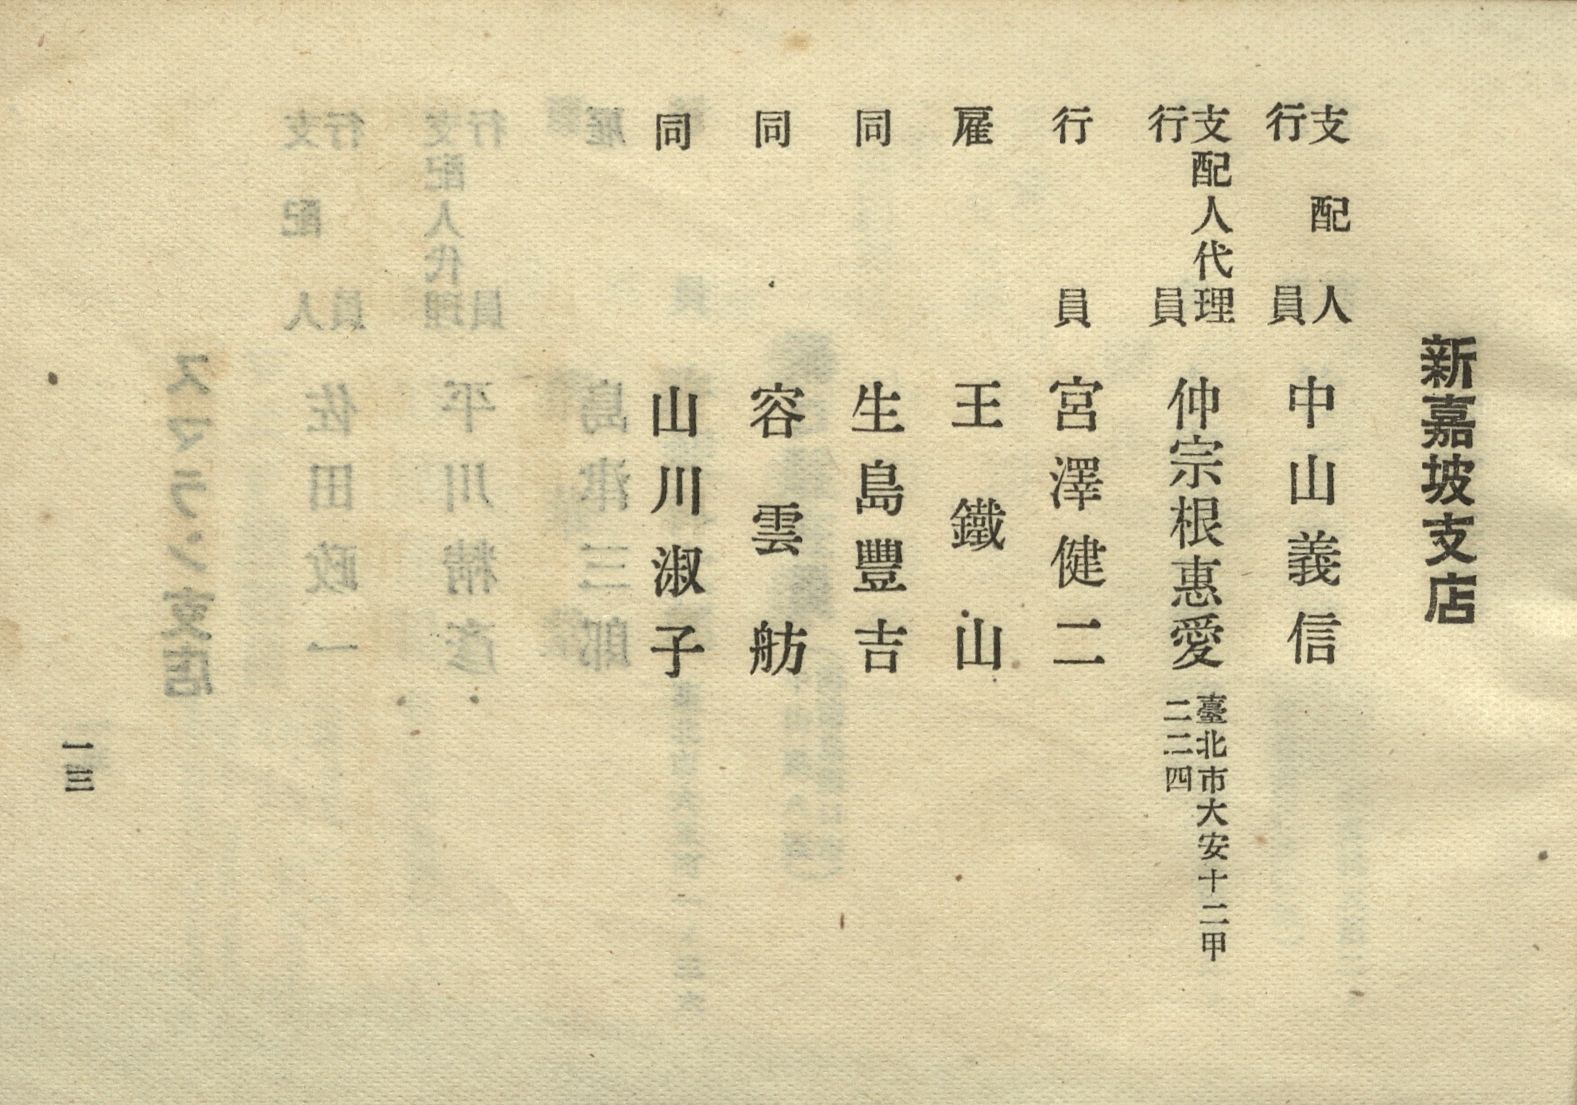 新嘉坡支店
支配人
行員
中山義信
支配人代理
行員
仲宗根惠愛
臺北市大安十二甲
二二四
行員
宮澤健二
雇
王鐵山
同
生島豐吉
同
容雲舫
同
山川淑子
一三